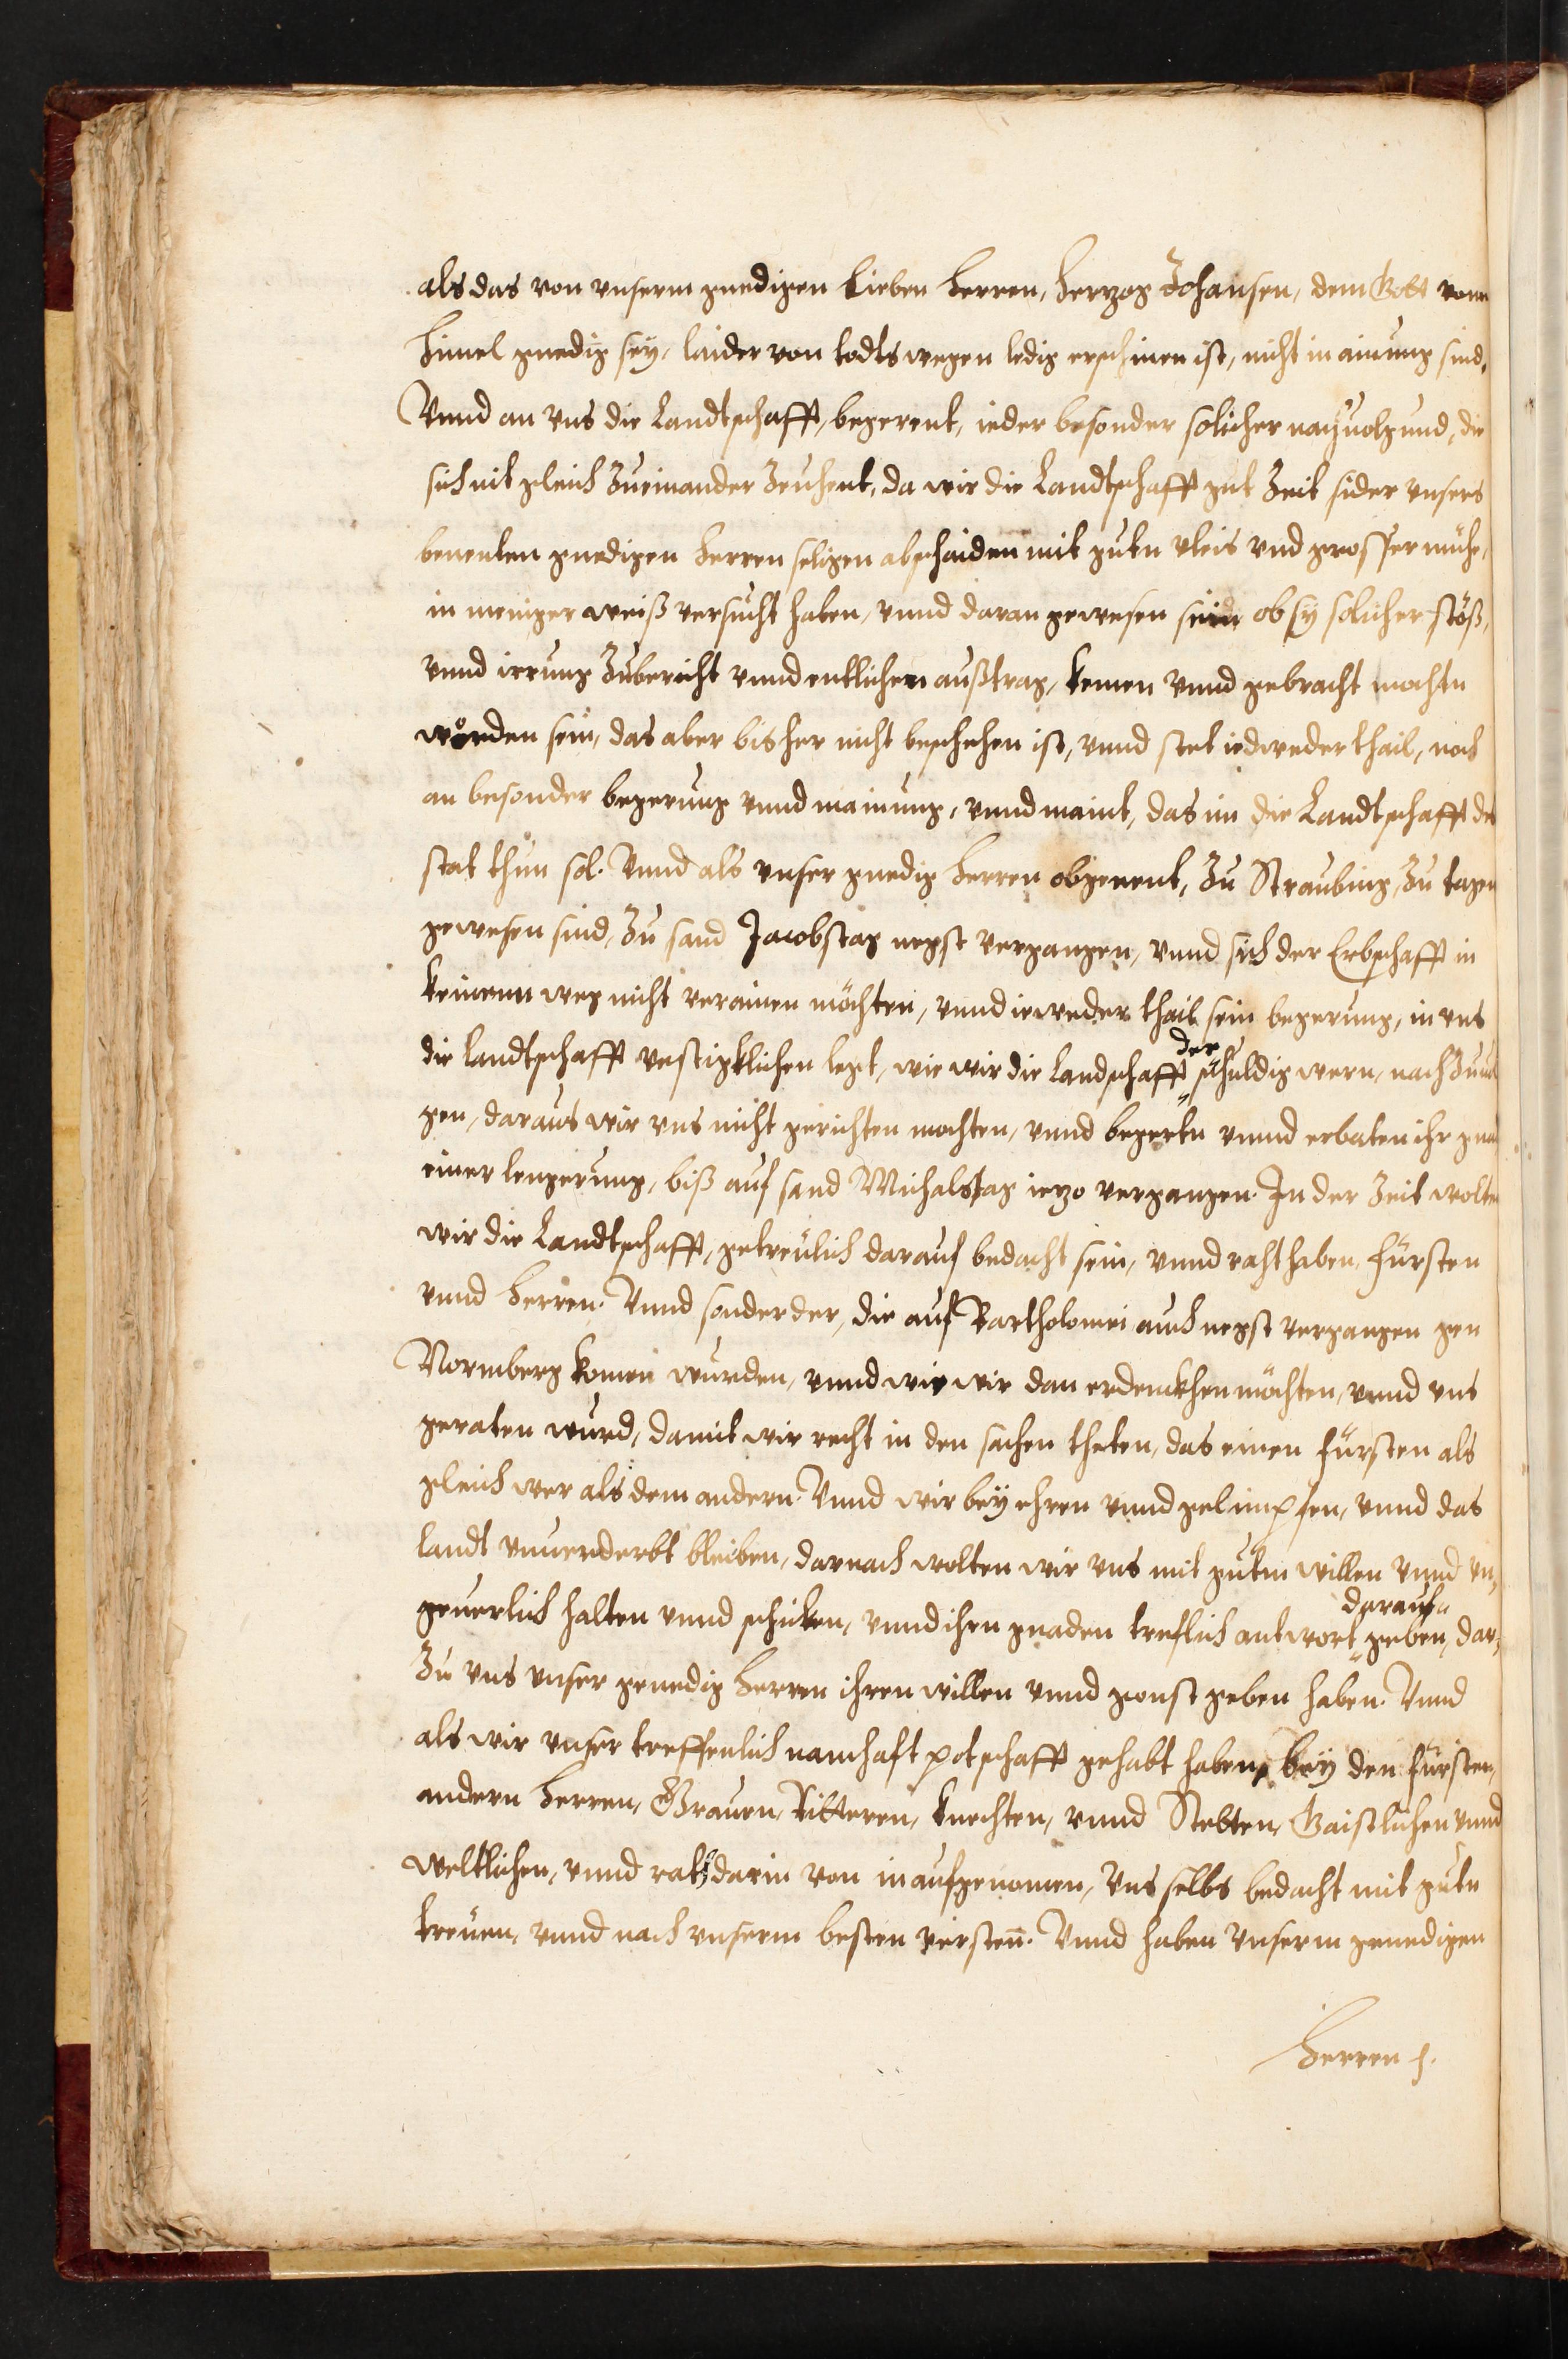 als das von vnserm gnedigen lieben Herren, Herzog Johansen, dem Gott vom
Himel gnedig sey, laider von todts wegen ledig erschinen ist, nicht in ainung sind.
Vnnd an vns die Landtschafft, begerent, ieder besonder solicher nachuolg und, die
sich nit gleich Zueinander Zeuhent, da wir die Landtschafft gut Zeit sider vnsers
benenten gnedigen Herren seligen abschaiden mit guten vleis vnd grosser mühe,
in meniger weiß versucht haben, vnnd daran gewesen sein ob sy solicher stöß,
vnnd irrung Zubericht vnnd entlichen außtrag, komen vnnd gebracht mochtn
worden sein, das aber bisher nicht beschehen ist, vnnd stet iedweder thail, noch
an besonder begerung vnnd mainung, vnnd maint, das im die Landtschafft des
stat thun sol. Vnnd als vnser gnedig Herren obgenent, Zu Straubing, Zu tagen
gewesen sind, Zu sand Jacobstag negst vergangen, vnnd sich der Erbschafft in
keinenn weg nicht verainen möchten, vnnd ieweder thail sein begerung, in vns
die landtschafft vestigklichen legt, wie wir die Landschafft der schuldig wern, nach Zuuol
gen, daraus wir vns nicht gerichten mochten, vnnd begertn vnnd erbaten ihr gnad
einer lengerung, biß auf sand Michalstag iezo vergangen. In der Zeit wolten
wir die Landtschafft, getreulich darauf bedacht sein, vnnd raht haben, fürsten
vnnd Herren. Vnnd sonder der, die auf Bartholomei auch negst vergangen gen
Normberg komen wurden, vnnd wie wir dan erdenckhen möchten, vnnd vns
geraten wurd, damit wir recht in den sachen theten, das einen fürsten als
gleich wer als dem andern. Vnnd wir bey ehren vnnd gelimpfen, vnnd das
landt vnuerderbt bleiben, darnach wolten wir vns mit gutem willen vnnd vn,
geuerlich halten vnnd schicken, vnnd ihren gnaden treflich antwort darauf geben, dar,
Zu vns vnser genedig Herren ihren willen vnnd gonst geben haben. Vnnd
als wir vnser treffenlich namhaft potschafft gehabt haben, bey den fürsten,
andern Herren, Grauen, Ritteren, knechten, vnnd Stetten, Gaistlichen vnnd
weltlichen, vnnd rats darin von in aufgenomen, Vns selbs bedacht mit guten
treuen, vnnd nach vnserm besten versten̄. Vnnd haben vnserm genedigen
Herren